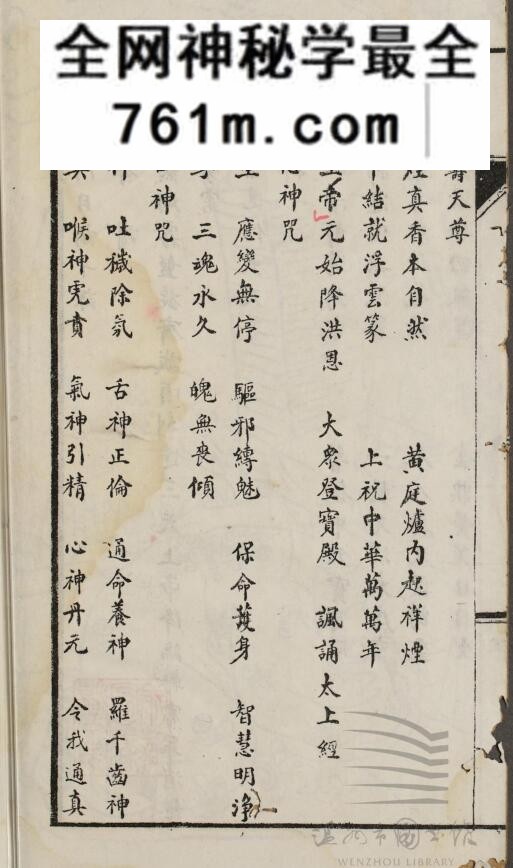 全网神秘学最全
761m.com
壽天尊
真香本自然 黄庭爐内起祥煙
結就浮雲篆 上祝中華萬萬年
帝元始降洪恩 大衆登寳殿 諷誦太上經
神咒
應變無停 驅邪縳魅 保命護身 智慧明浄
三魂永久 魄無喪傾
神咒
吐穢除氛 舌神正倫 通命養神 羅千齒神
喉神虎賁 氣神引精 心神丹元 令我通真
温州市圖書館
WENZHOU LIBRARY